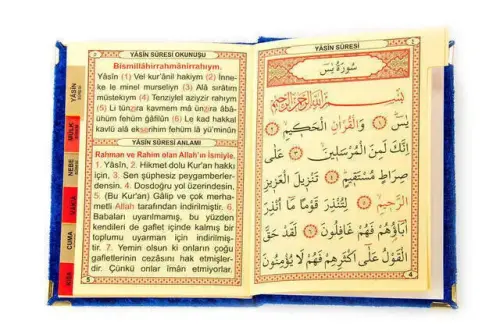 YÂSİN SÛRESİ OKUNUŞU
Bismillâhirrahmânirrahıym.
Yâsîn (1) Vel kur'ânil hakiym (2) İnne-
ke le minel murseliyn (3) Alâ sırâtım
müstekıym (4) Tenziylel aziyzir rahıym
(5) Li tünzira kavmem mâ ünzira âbâ-
ühüm fehüm ğâfilûn (6) Le kad hakkal
kavlü alâ ekserihim fehüm lâ yü'minûn
YÂSİN SÛRESİ ANLAMI
Rahman ve Rahim olan Allah'ın ismiyle.
1. Yâsîn, 2. Hikmet dolu Kur'an hakkı
için, 3. Sen şüphesiz peygamberler-
densin. 4. Dosdoğru yol üzerindesin.
5. (Bu Kur'an) Gâlip ve çok merha-
metli Allah tarafından indirilmiştir. 6.
Babaları uyarılmamış, bu yüzden
kendileri de gaflet içinde kalmış bir
toplumu uyarman için indirilmiş-
tir. 7. Yemin olsun ki onların çoğu
gafletlerinin cezasını hak etmişler-
dir. Çünkü onlar iman etmiyorlar.
5
YÂSİN
MÜLK
NEBE
VAKIA
CUMA
YÂSİN SÛRESİ
سُورَةُ يٰسٓ
بِسْمِ اللّٰهِ الرَّحْمٰنِ الرَّحِيمِ
يٰسٓ ﴿١﴾ وَالْقُرْاٰنِ الْحَكِيمِ ﴿٢﴾
اِنَّكَ لَمِنَ الْمُرْسَلِينَ ﴿٣﴾ عَلٰى
صِرَاطٍ مُسْتَقِيمٍ ﴿٤﴾ تَنْزِيلَ الْعَزِيزِ
الرَّحِيمِ ﴿٥﴾ لِتُنْذِرَ قَوْمًا مَا اُنْذِرَ
اٰبَاؤُهُمْ فَهُمْ غَافِلُونَ ﴿٦﴾ لَقَدْ حَقَّ
الْقَوْلُ عَلٰى اَكْثَرِهِمْ فَهُمْ لَا يُؤْمِنُونَ
4